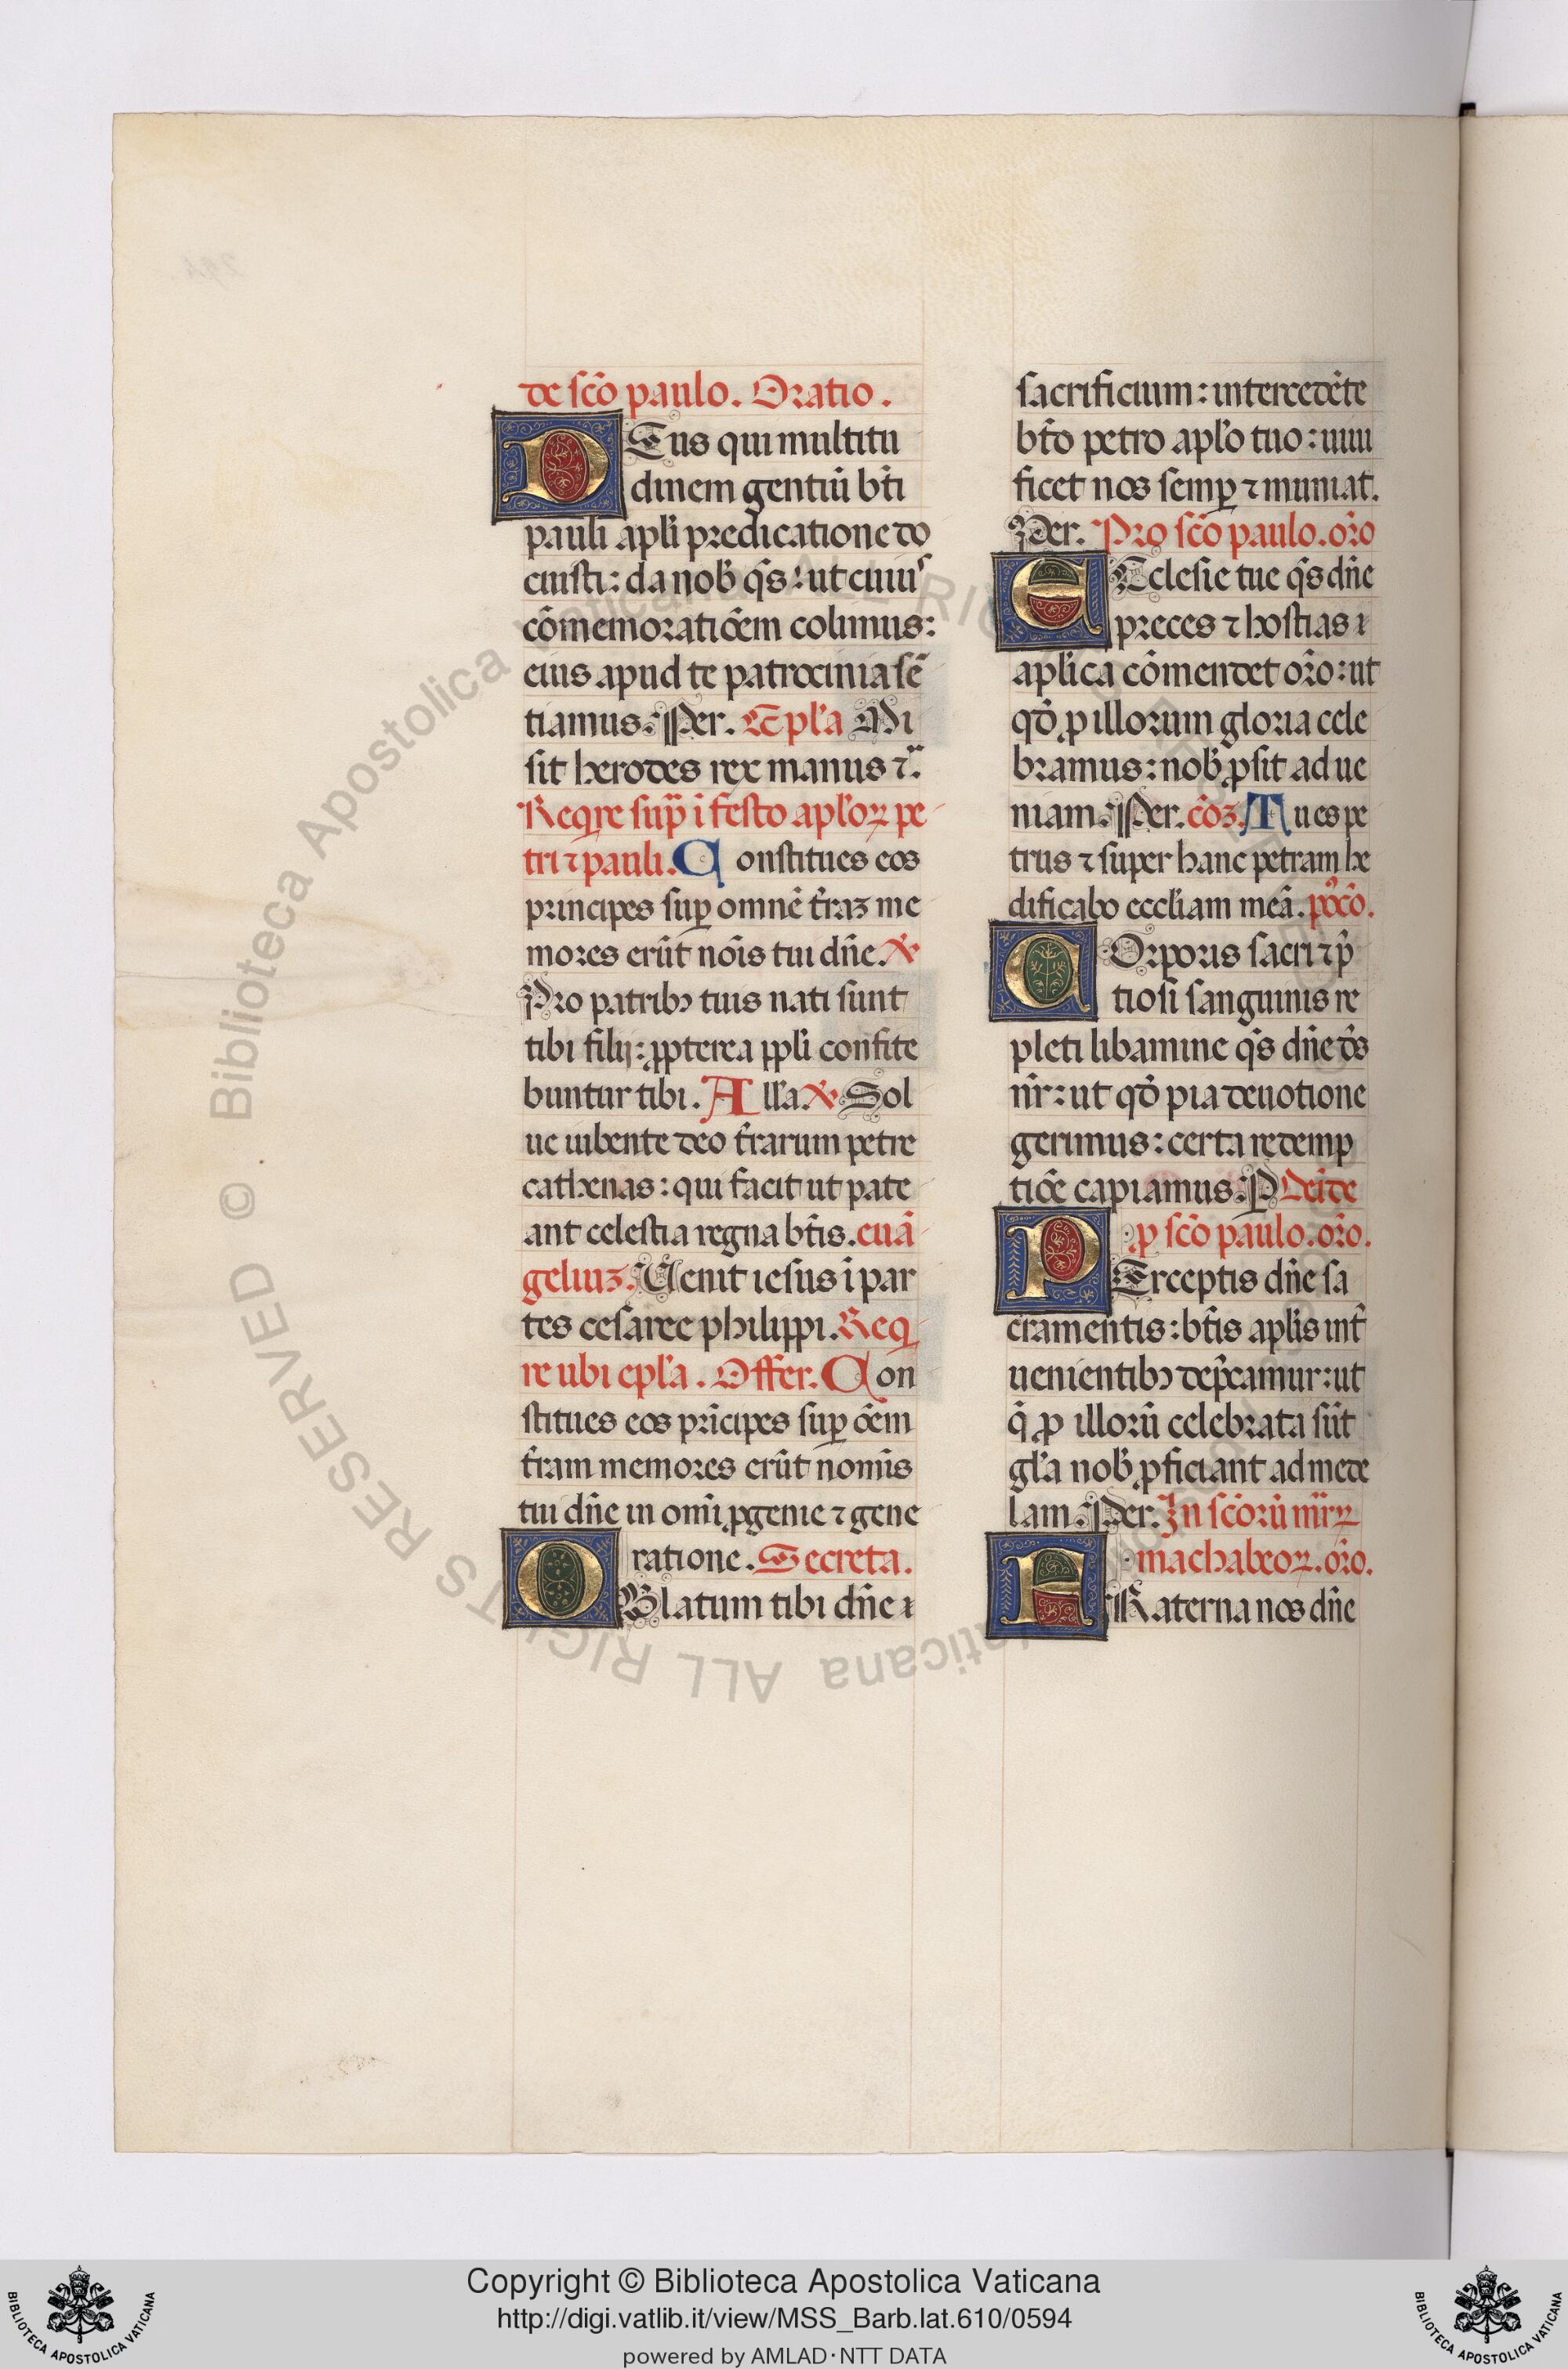 de sc̄o paulo. Oratio.
DEus qui multitu
dinem gentiū bt̄i
pauli apl̄i predicatione do
cuisti: da nob̄ q̄s: ut cuius
cōmemoratiōem colimus:
eius apud te patrocinia sē
tiamus. Per. Epl̄a Mi
sit herodes rex manus ⁊̄.
Reqre sup̄ ī festo apl̄oꝝ pe
tri ⁊ pauli. Constitues eos
principes suꝑ omnē t̄raz me
mores erūt nōis tui dn̄e. ꝟ
Pro patribꝰ tuis nati sunt
tibi filij: ꝓpterea ppl̄i confite
buntur tibi. All̄a ꝟ Sol
ue iubente deo t̄rarum petre
cathenas: qui facit ut pate
ant celestia regna bt̄is. euā
geliuz. Uenit iesus ī par
tes cesaree philippi. Req
re ubi epl̄a. Offer. Con
stitues eos pr̄icipes suꝑ ōem
t̄ram memores erūt nomīs
tui dn̄e in omī ꝓgenie ⁊ gene
ratione. Secreta.
OBlatum tibi dn̄e ı
sacrificium: intercedēte
bt̄o petro apl̄o tuo: uiui
ficet nos semꝑ ⁊ muniat.
Per. Pro sc̄o paulo. or̄o
ECclesie tue q̄s dn̄e
preces ⁊ hostias ı
apl̄ica cōmendet or̄o: ut
qd̄ ꝓ illorum gloria cele
bramus: nob̄ ꝓsit ad ue
niam. Per. cōz. Tu es pe
trus ⁊ super hanc petram he
dificabo eccl̄iam meā. pꝰcō.
COrporis sacri ⁊ p̄
tiosi sanguinis re
pleti libamine q̄s dn̄e ds̄
nr̄: ut qd̄ pia deuotione
gerimus: certa redemp
tiōe capiamus. P Deīde
ꝓ sc̄o paulo. or̄o.
PErceptis dn̄e sa
cramentis: bt̄is apl̄is int̄
uenientibꝰ dep̄camur: ut
q̄ ꝓ illorū celebrata sūt
gl̄a nob̄ ꝓficiant ad mede
lam. Per. In sc̄orū mr̄ꝝ
machabeoꝝ. or̄o.
FRaterna nos dn̄e
Copyright © Biblioteca Apostolica Vaticana
http://digi.vatlib.it/view/MSS_Barb.lat.610/0594
powered by AMLAD·NTT DATA
BIBLIOTECA APOSTOLICA VATICANA
BIBLIOTECA APOSTOLICA VATICANA
© Biblioteca Apostolica Vaticana ALL RIGHTS RESERVED